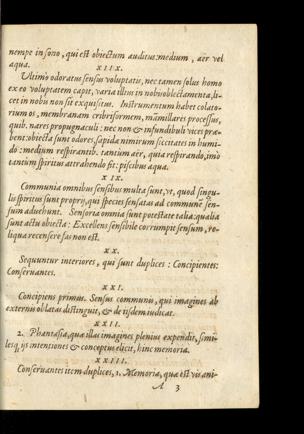 nempe in sono, qui est obiectum auditus: medium, aër vel
aqua.
XIIX.
Ultimò odoratus sensus voluptatis, nec tamen solus homo
ex eo voluptatem capit, varia illius in nobis oblectamenta, li-
cet in nobis non sit exquisitus. Instrumentum habet colato-
rium os, membranam cribriformem, mamillares processus,
quib. nares propugnaculi: nec non & infundibuli vices præ-
bent: obiecta sunt odores, sapida nimirum siccitates in humi-
do: medium respirantib. tantùm aër, quia respirando, imò
tantùm spiritus attrahendo fit: piscibus aqua.
XIX.
Communia omnibus sensibus multa sunt, vt, quod singu-
lis spiritus sunt proprij, qui species sensatas ad commune sen-
sum aduehunt. Sensoria omnia sunt potestate talia: qualia
sunt actu obiecta: Excellens sensibile corrumpit sensum, re-
liqua recensere fas non est.
XX.
Sequuntur interiores, qui sunt duplices: Concipientes:
Conservantes.
XXI.
Concipiens primus. Sensus communis, qui imagines ab
externis oblatas distinguit, & de iisdem iudicat.
XXII.
2. Phantasia, quæ illas imagines plenius expendit, simi-
lesq, ijs intentiones & conceptus elicit, hinc memoria.
XXIII.
Conservantes item duplices, 1. Memoria, quæ est vis ani-
A 3